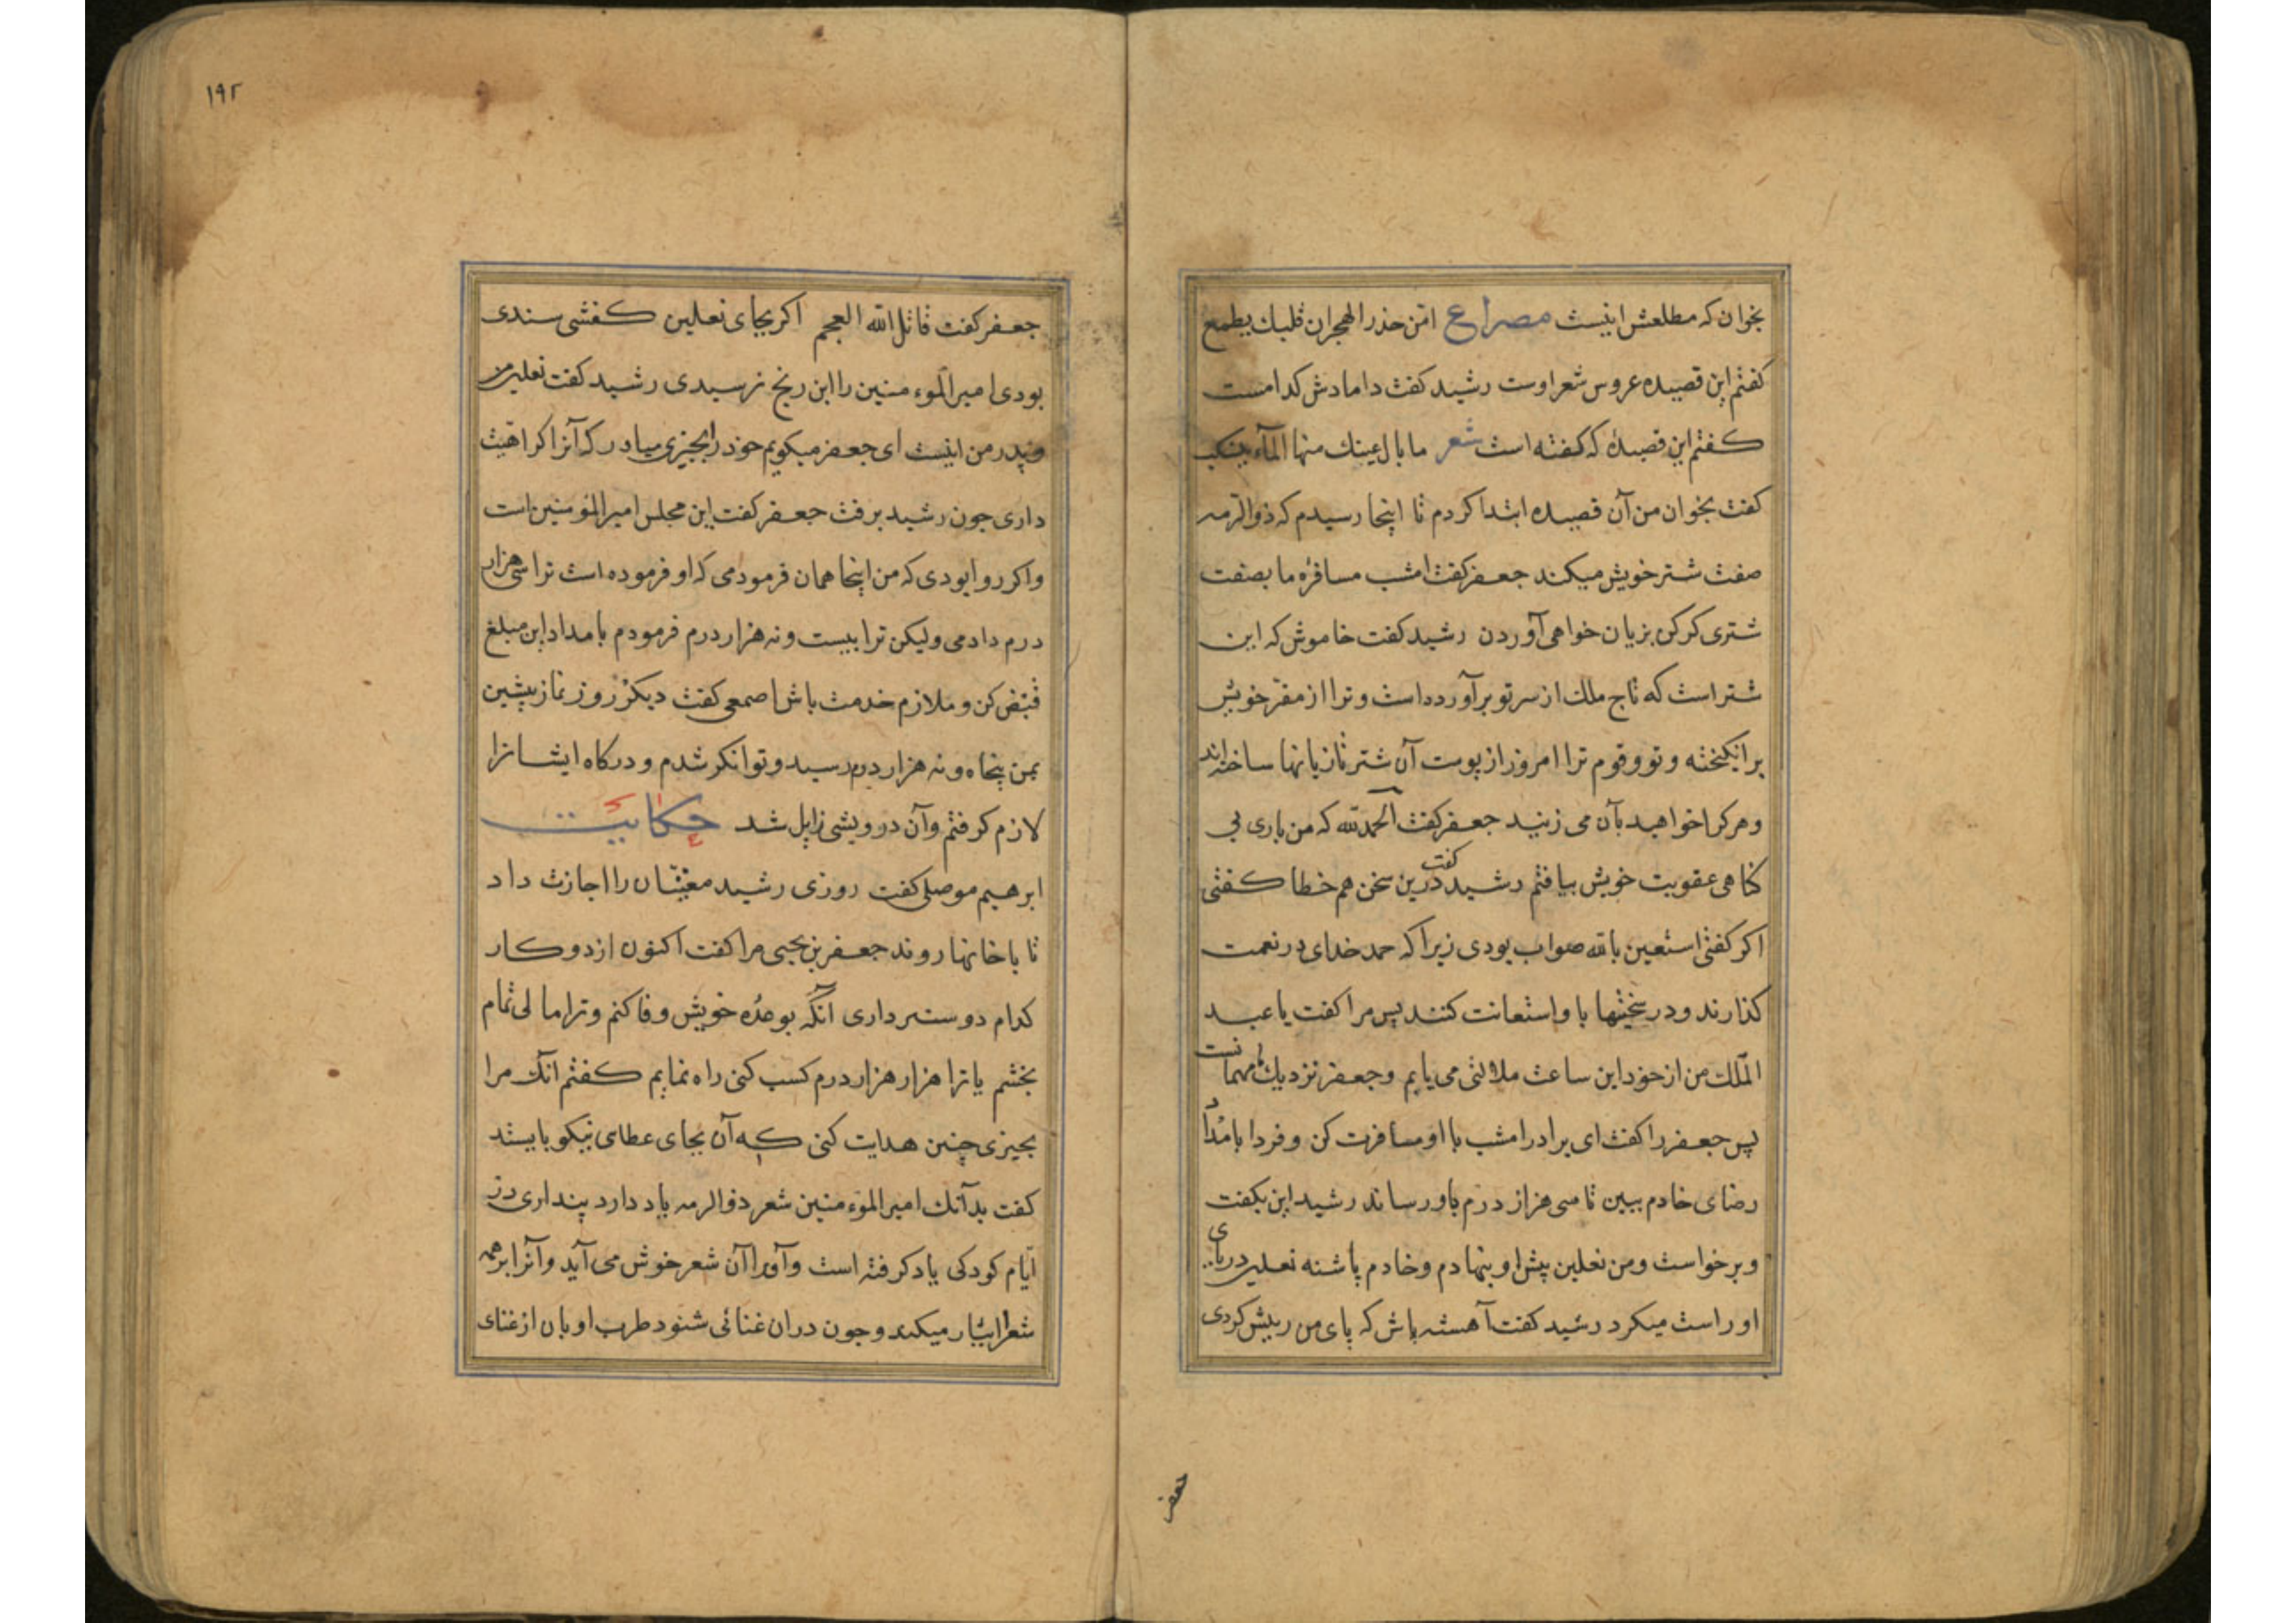 بخوان که مطلعش اینست مصراع امن حذر الهجران قلبك يطمع
کفتم این قصیده عروس شعر اوست رشید کفت دامادش کدامست
کفتم این قصیده که کفته است شعر ما بال عینك منها المآء ینسکب
کفت بخوان من آن قصیده ابتدا کردم تا اینجا رسیدم که ذوالرمه
صفت شتر خویش میکند جعفر کفت امشب مسافرهٔ ما بصفت
شتری کرکن بزیان خواهی آوردن رشید کفت خاموش که این
شتر است که تاج ملك از سر تو برآورده است و ترا از مقرّ خویش
برانکیخته و تو و قوم ترا امروز از پوست آن شتر تازیانها ساخته‌اند
و هر کرا خواهید بآن می زنید جعفر کفت الحمد لله که من باری بی
کناهی عقوبت خویش بیافتم رشید کفت درین سخن هم خطا کفتی
اکر کفتی استعین بالله صواب بودی زیرا که حمد خدای در نعمت
کذارند و در سختیها باو استعانت کنند پس مرا کفت یا عبد
الملك من از خود این ساعت ملالتی می یابم و جعفر نزدیك ما مهمانست
پس جعفر را کفت ای برادر امشب با او مسافرت کن و فردا بامداد
رضای خادم ببین تا سی هزار درم باو رساند رشید این بکفت
و برخواست و من نعلین پیش او بنهادم و خادم پاشنه نعلین در پای
او راست میکرد رشید کفت آهسته باش که پای من ریش کردی
جعفر
١٩٢
جعفر کفت قاتل الله العجم اکر بجای نعلین کفشی سندی
بودی امیر المؤمنین را این رنج نرسیدی رشید کفت نعلین من
و پدر من اینست ای جعفر میکویم خود را بچیزی میادر که آنرا کراهیت
داری چون رشید برفت جعفر کفت این مجلس امیر المؤمنین است
و اکر روا بودی که من اینجا همان فرمودمی که او فرموده است ترا سی هزار
درم دادمی ولیکن ترا بیست و نه هزار درم فرمودم بامداد این مبلغ
قبض کن و ملازم خدمت باش اصمعی کفت دیکر روز نماز پیشین
بمن پنجاه و نه هزار درم رسید و توانکر شدم و درکاه ایشانرا
لازم کرفتم و آن درویشی زایل شد حکایت
ابرهیم موصلی کفت روزی رشید مغنیان را اجازت داد
تا با خانها روند جعفر بن یحیی مرا کفت اکنون از دو کار
کدام دوستر داری آنکه بوعده خویش وفا کنم و ترا مالی تمام
بخشم یا ترا هزار هزار درم کسب کنی راه نمایم کفتم آنك مرا
بچیزی چنین هدایت کنی که آن بجای عطای نیکو بایستد
کفت بدآنك امیر المؤمنین شعر ذوالرمه یاد دارد پنداری در
ایام کودکی یاد کرفته است و او را آن شعر خوش می آید و آنرا بر همه
شعرا ایثار میکند و چون در ان غنائی شنود طرب او بان از غنای